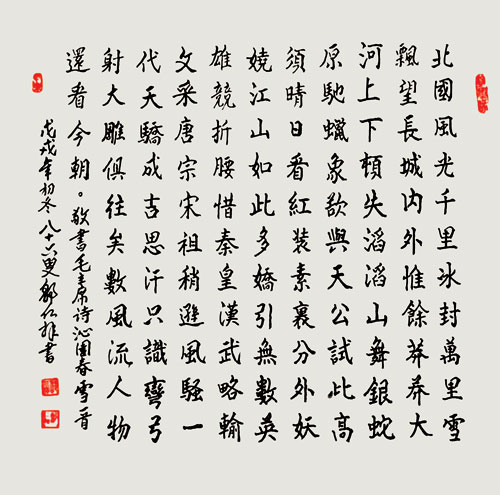 北國風光千里冰封萬里雪
飄望長城内外惟餘莽莽大
河上下頓失滔滔山舞銀蛇
原馳蠟象欲與天公試比高
須晴日看紅裝素裹分外妖
嬈江山如此多嬌引無數英
雄競折腰惜秦皇漢武略輸
文采唐宗宋祖稍遜風騷一
代天驕成吉思汗只識彎弓
射大雕俱往矣數風流人物
還看今朝。敬書毛主席诗沁園春雪一首
戊戌年初冬八十六叟仁書